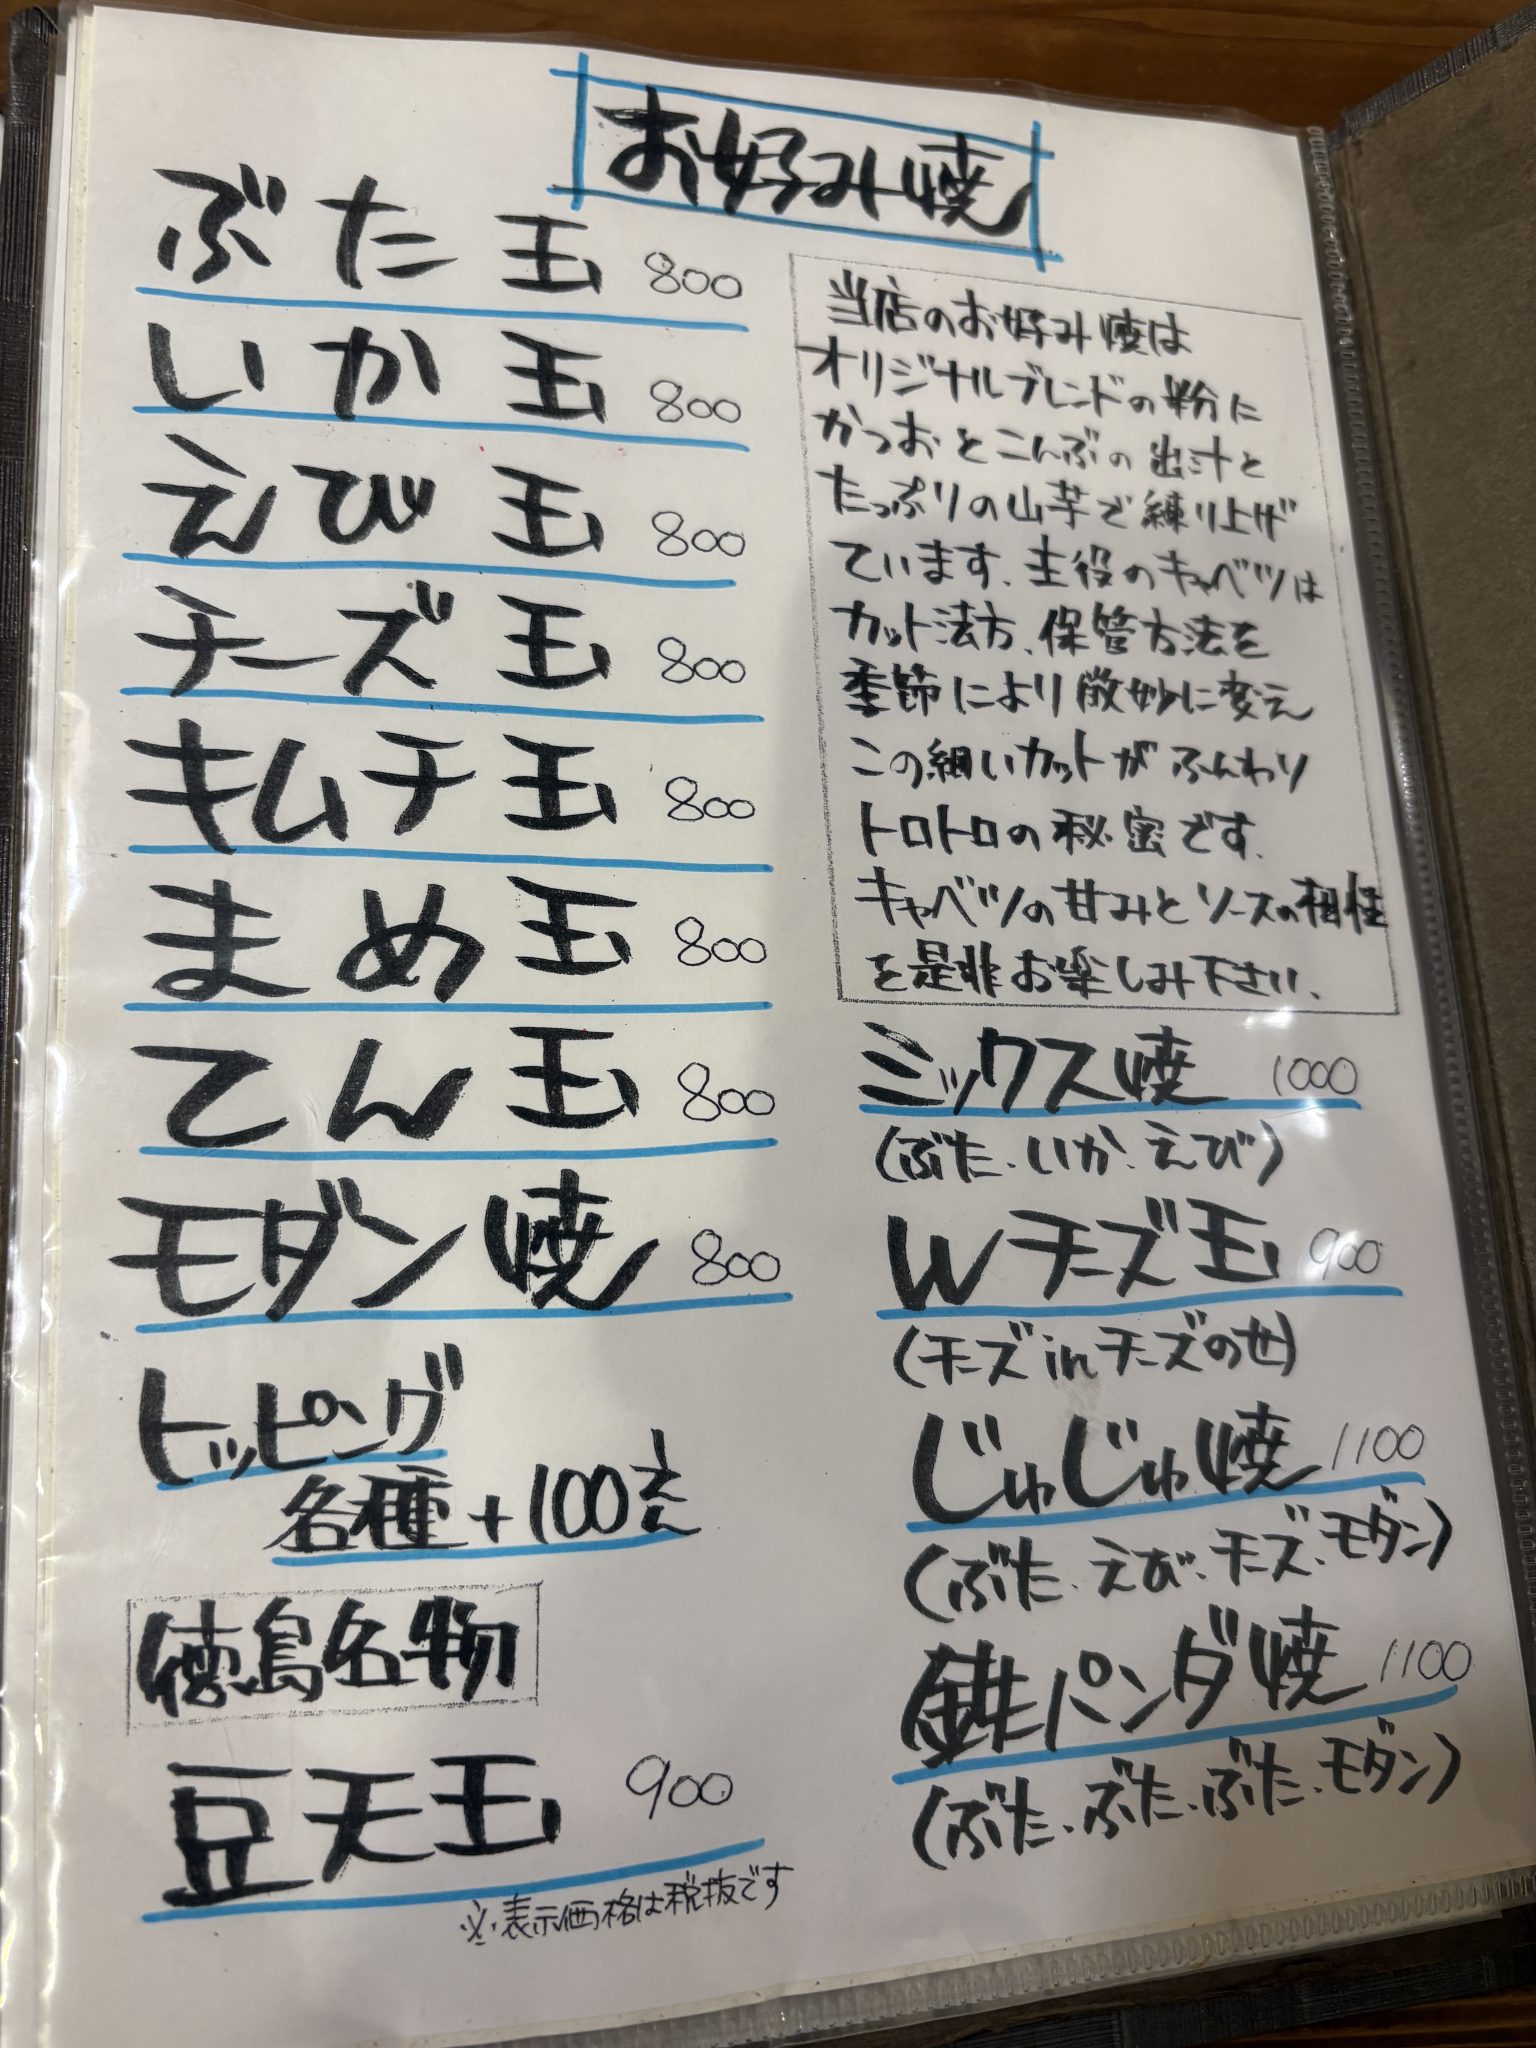 お好み焼
ぶた玉 800
いか玉 800
えび玉 800
チーズ玉 800
キムチ玉 800
まめ玉 800
てん玉 800
モダン焼 800
トッピング
各種+100えん
徳島名物
豆天玉 900
※表示価格は税抜です
当店のお好み焼は
オリジナルブレンドの粉に
かつおとこんぶの出汁と
たっぷりの山芋で練り上げ
ています、主役のキャベツは
カット法方、保管方法を
季節により微妙に変え
この細いカットがふんわり
トロトロの秘密です、
キャベツの甘みとソースの相性
を是非お楽しみ下さい、
ミックス焼 1000
(ぶた、いか、えび)
Wチーズ玉 900
(チーズinチーズのせ)
じゅじゅ焼 1100
(ぶた、えび、チーズ、モダン)
鉄パンダ焼 1100
(ぶた、ぶた、ぶた、モダン)